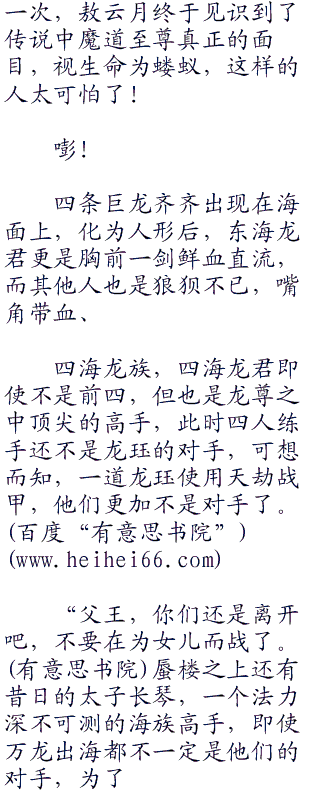 一次，敖云月终于见识到了
传说中魔道至尊真正的面
目，视生命为蝼蚁，这样的
人太可怕了！
嘭！
四条巨龙齐齐出现在海
面上，化为人形后，东海龙
君更是胸前一剑鲜血直流，
而其他人也是狼狈不已，嘴
角带血、
四海龙族，四海龙君即
使不是前四，但也是龙尊之
中顶尖的高手，此时四人练
手还不是龙珏的对手，可想
而知，一道龙珏使用天劫战
甲，他们更加不是对手了。
(百度“有意思书院”)
(www.heihei66.com)
“父王，你们还是离开
吧，不要在为女儿而战了。
(有意思书院)蜃楼之上还有
昔日的太子长琴，一个法力
深不可测的海族高手，即使
万龙出海都不一定是他们的
对手，为了